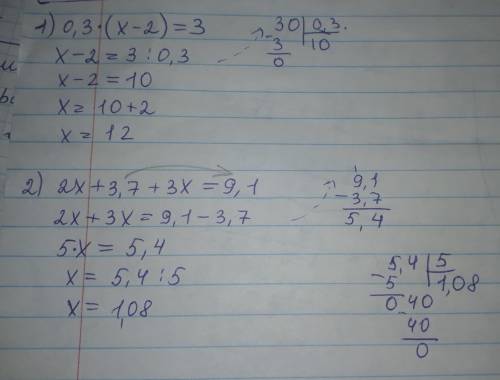 1) 0,3·(x-2)=3
x-2=3:0,3
x-2=10
x=10+2
x=12
30 | 0,3.
-3 | 10
0
2) 2x+3,7+3x=9,1
2x+3x=9,1-3,7
5·x=5,4
x=5,4:5
x=1,08
9,1
-3,7
5,4
5,4 | 5
-5 | 1,08
0 40
-40
0